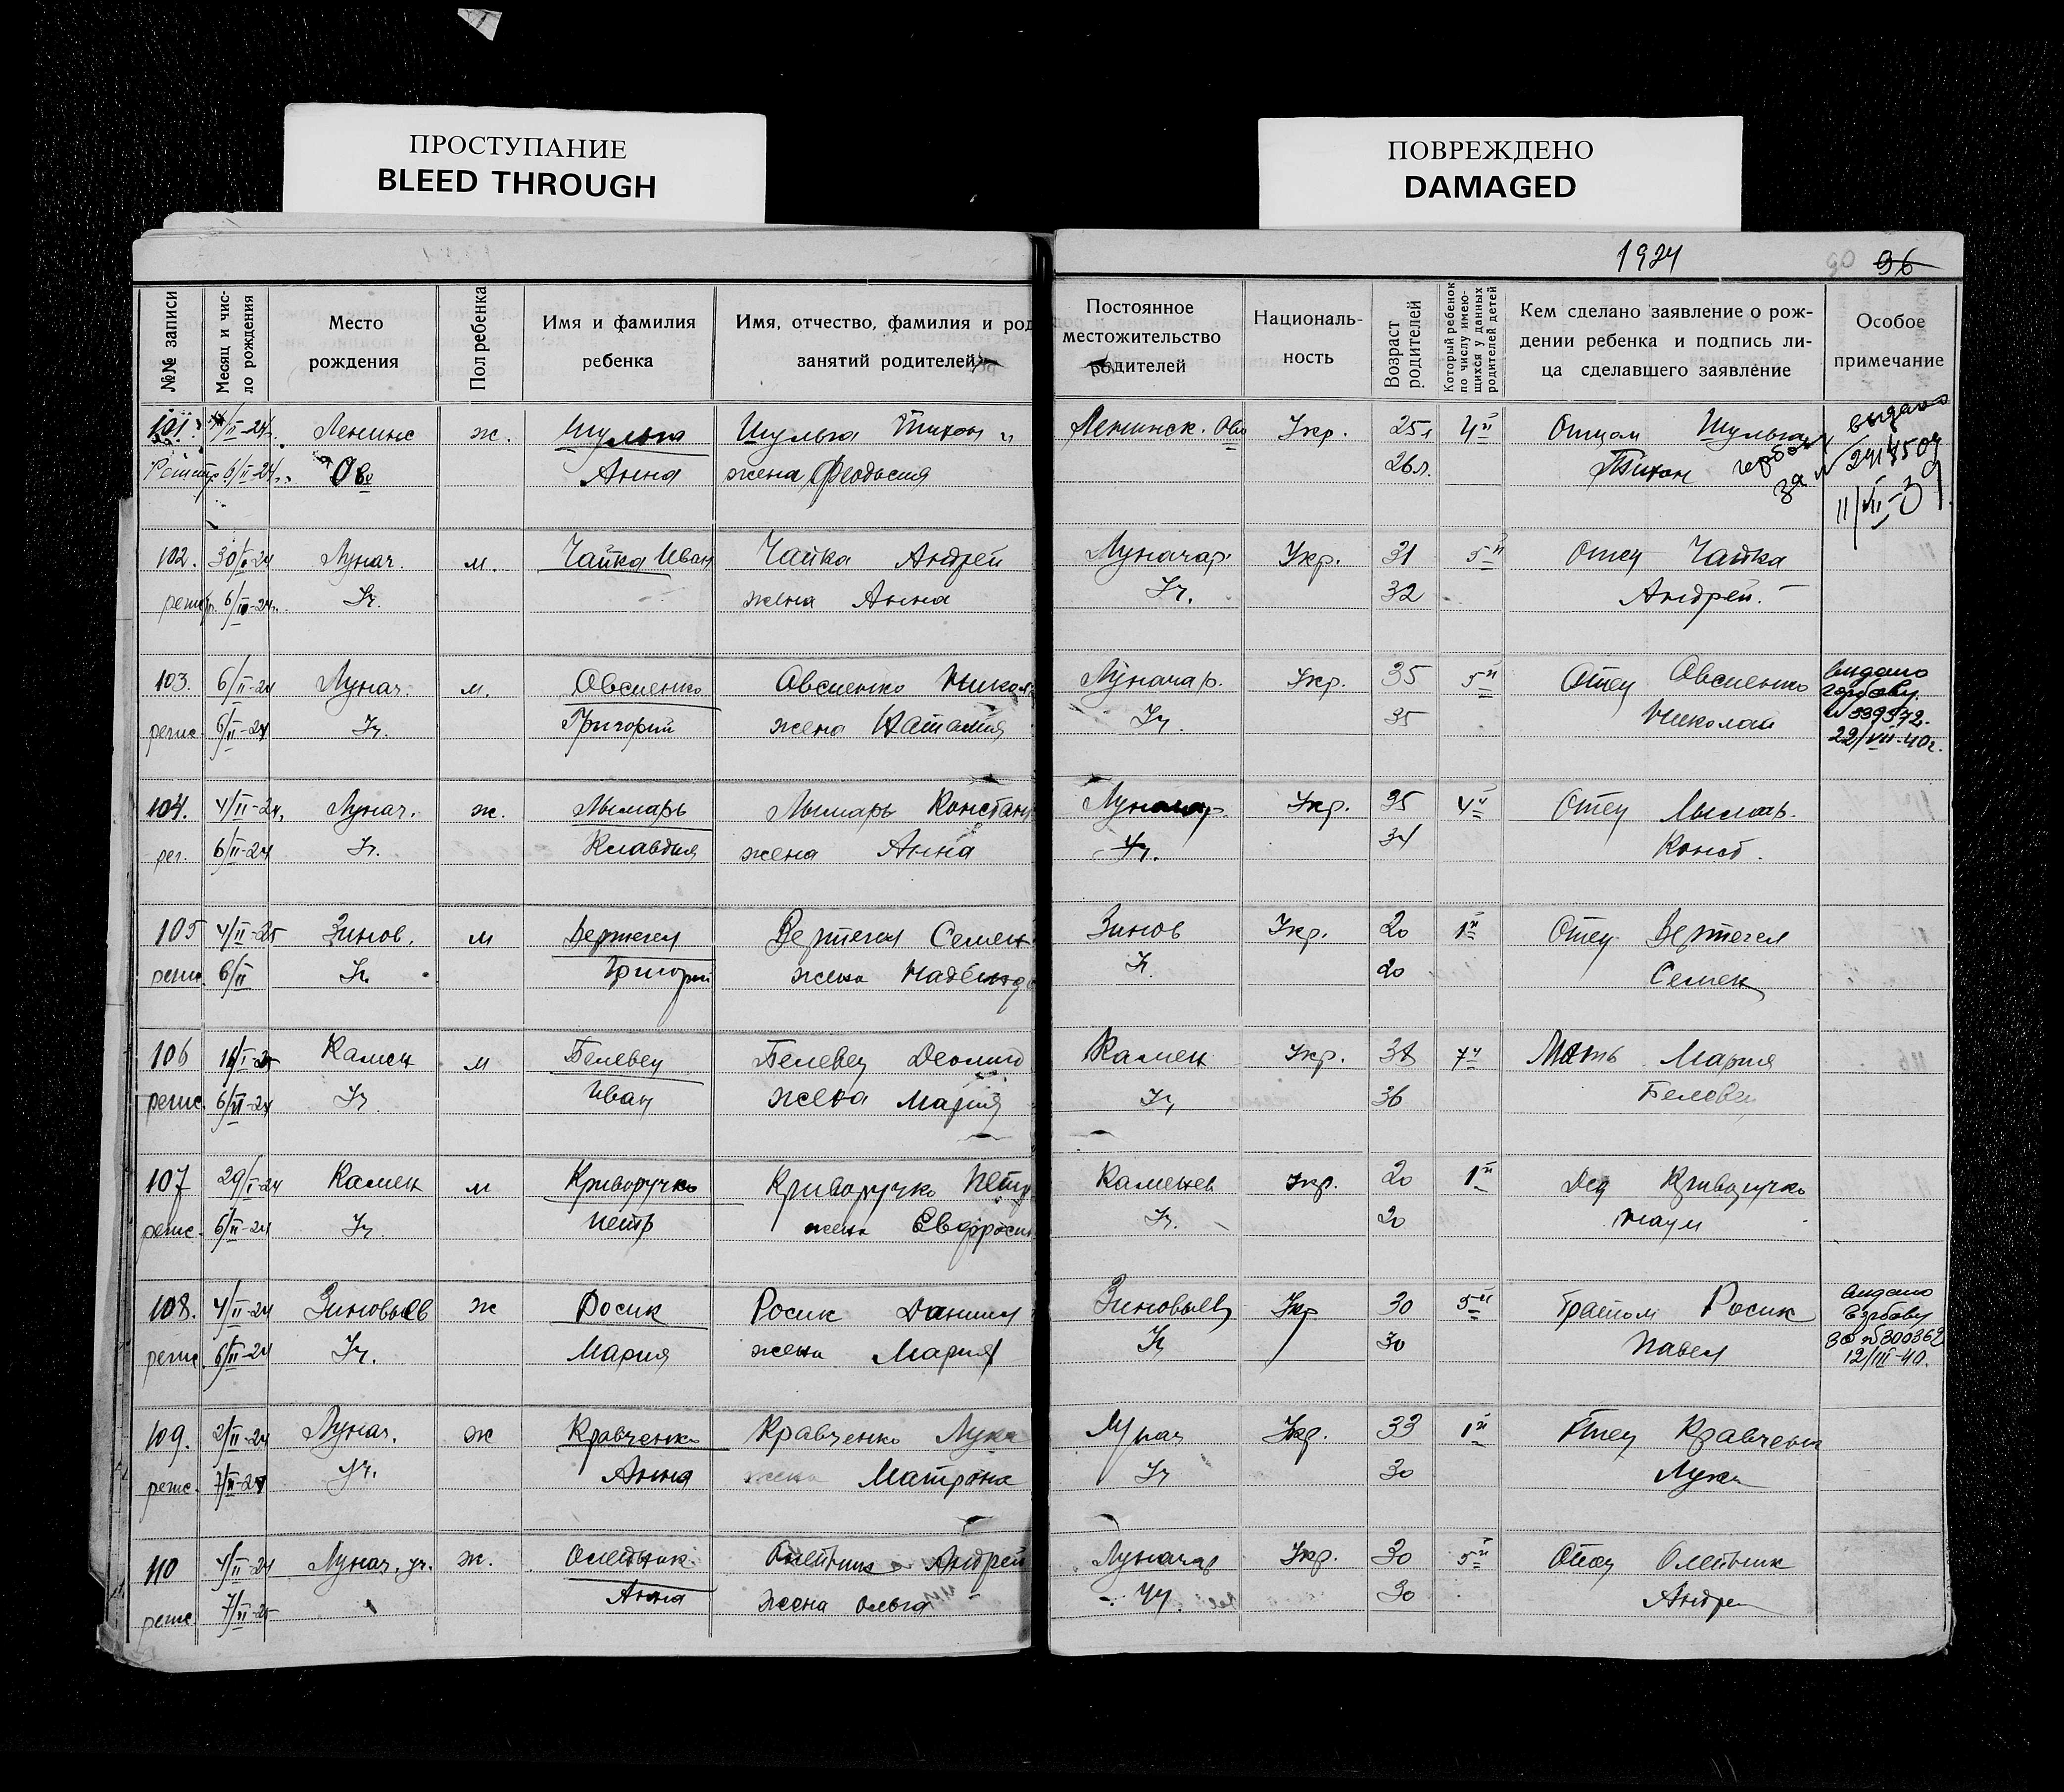 ПРОСТУПАНИЕ
BLEED THROUGH
ПОВРЕЖДЕНО
DAMAGED
1924 90 96
№№ записи
Месяц и чис-
ло рождения
Место
рождения
Пол ребенка
Имя и фамилия
ребенка
Имя, отчество, фамилия и род
занятий родителей
Постоянное
местожительство
родителей
Националь-
ность
Возраст
родителей
Который ребенок
по числу имею-
щихся у данных
родителей детей
Кем сделано заявление о рож-
дении ребенка и подпись ли-
ца сделавшего заявление
Особое
примечание
101. /II-24. Ленинс ж. Шульга Шульга Тихон и Ленинск. Укр. 25л 4й Отцом Шульга выдано
6/II-24. Анна жена Феодосия 26л. Тихон
11/VII-39
102. 30/I-24 Лунач. м. Чайка Иван Чайка Андрей Луначар. Укр. 31 5й Отец Чайка
6/II-24. Уч. жена Анна Уч. 32 Андрей.
103. 6/II-24 Лунач. м. Овсиенко Овсиенко Никол Луначар. Укр. 35 5й Отец Овсиенко выдано
регис. 6/II-24 Уч. Григорий жена Наталия Уч. 35 Николай
22/VII-40г.
104. 4/II-24. Лунач. ж. Лымарь Лымарь Констан Луначар. Укр. 35 4й Отец Лымарь.
рег. 6/II-24 Уч. Клавдия жена Анна Уч. 34 Конст.
105 4/II-25 Зинов. м Вертегел Вертегел Семен Зинов Укр. 20 1й Отец Вертегел
регис. 6/II Уч. Григорий жена Надежд Уч. 20 Семен
106 Камен м Белевец Белевец Камен Укр. 38 7й Мать Мария
регис. 6/II-24 Уч. Иван жена Мария Уч. 36 Белевец
107 29/I-24 Камен м Криворучко Криворучко Петр Каменев Укр. 20 1й Дед Криворучко
регис. 6/II-24 Уч. Петр жена Евфросин Уч. 20 Наум
108. 4/II-24 Зиновьев ж Росик Росик Даниил Зиновьев Укр 30 5й Братом Росик выдано
регис 6/II-24 Уч. Мария жена Мария Уч 30 Павел
12/III-40.
109. 2/II-24 Лунач. ж Кравченко Кравченко Лука Лунач Укр. 33 1й Отец Кравченк
регис. 7/II-24 уч. Анна жена Матрона Уч 30 Лука
110 4/II-24 Лунач. уч. ж. Олейник Олейник Андрей Луначар Укр. 30 5й Отец Олейник
регис 7/II-25 Анна жена Ольга Уч. 30 Андрей